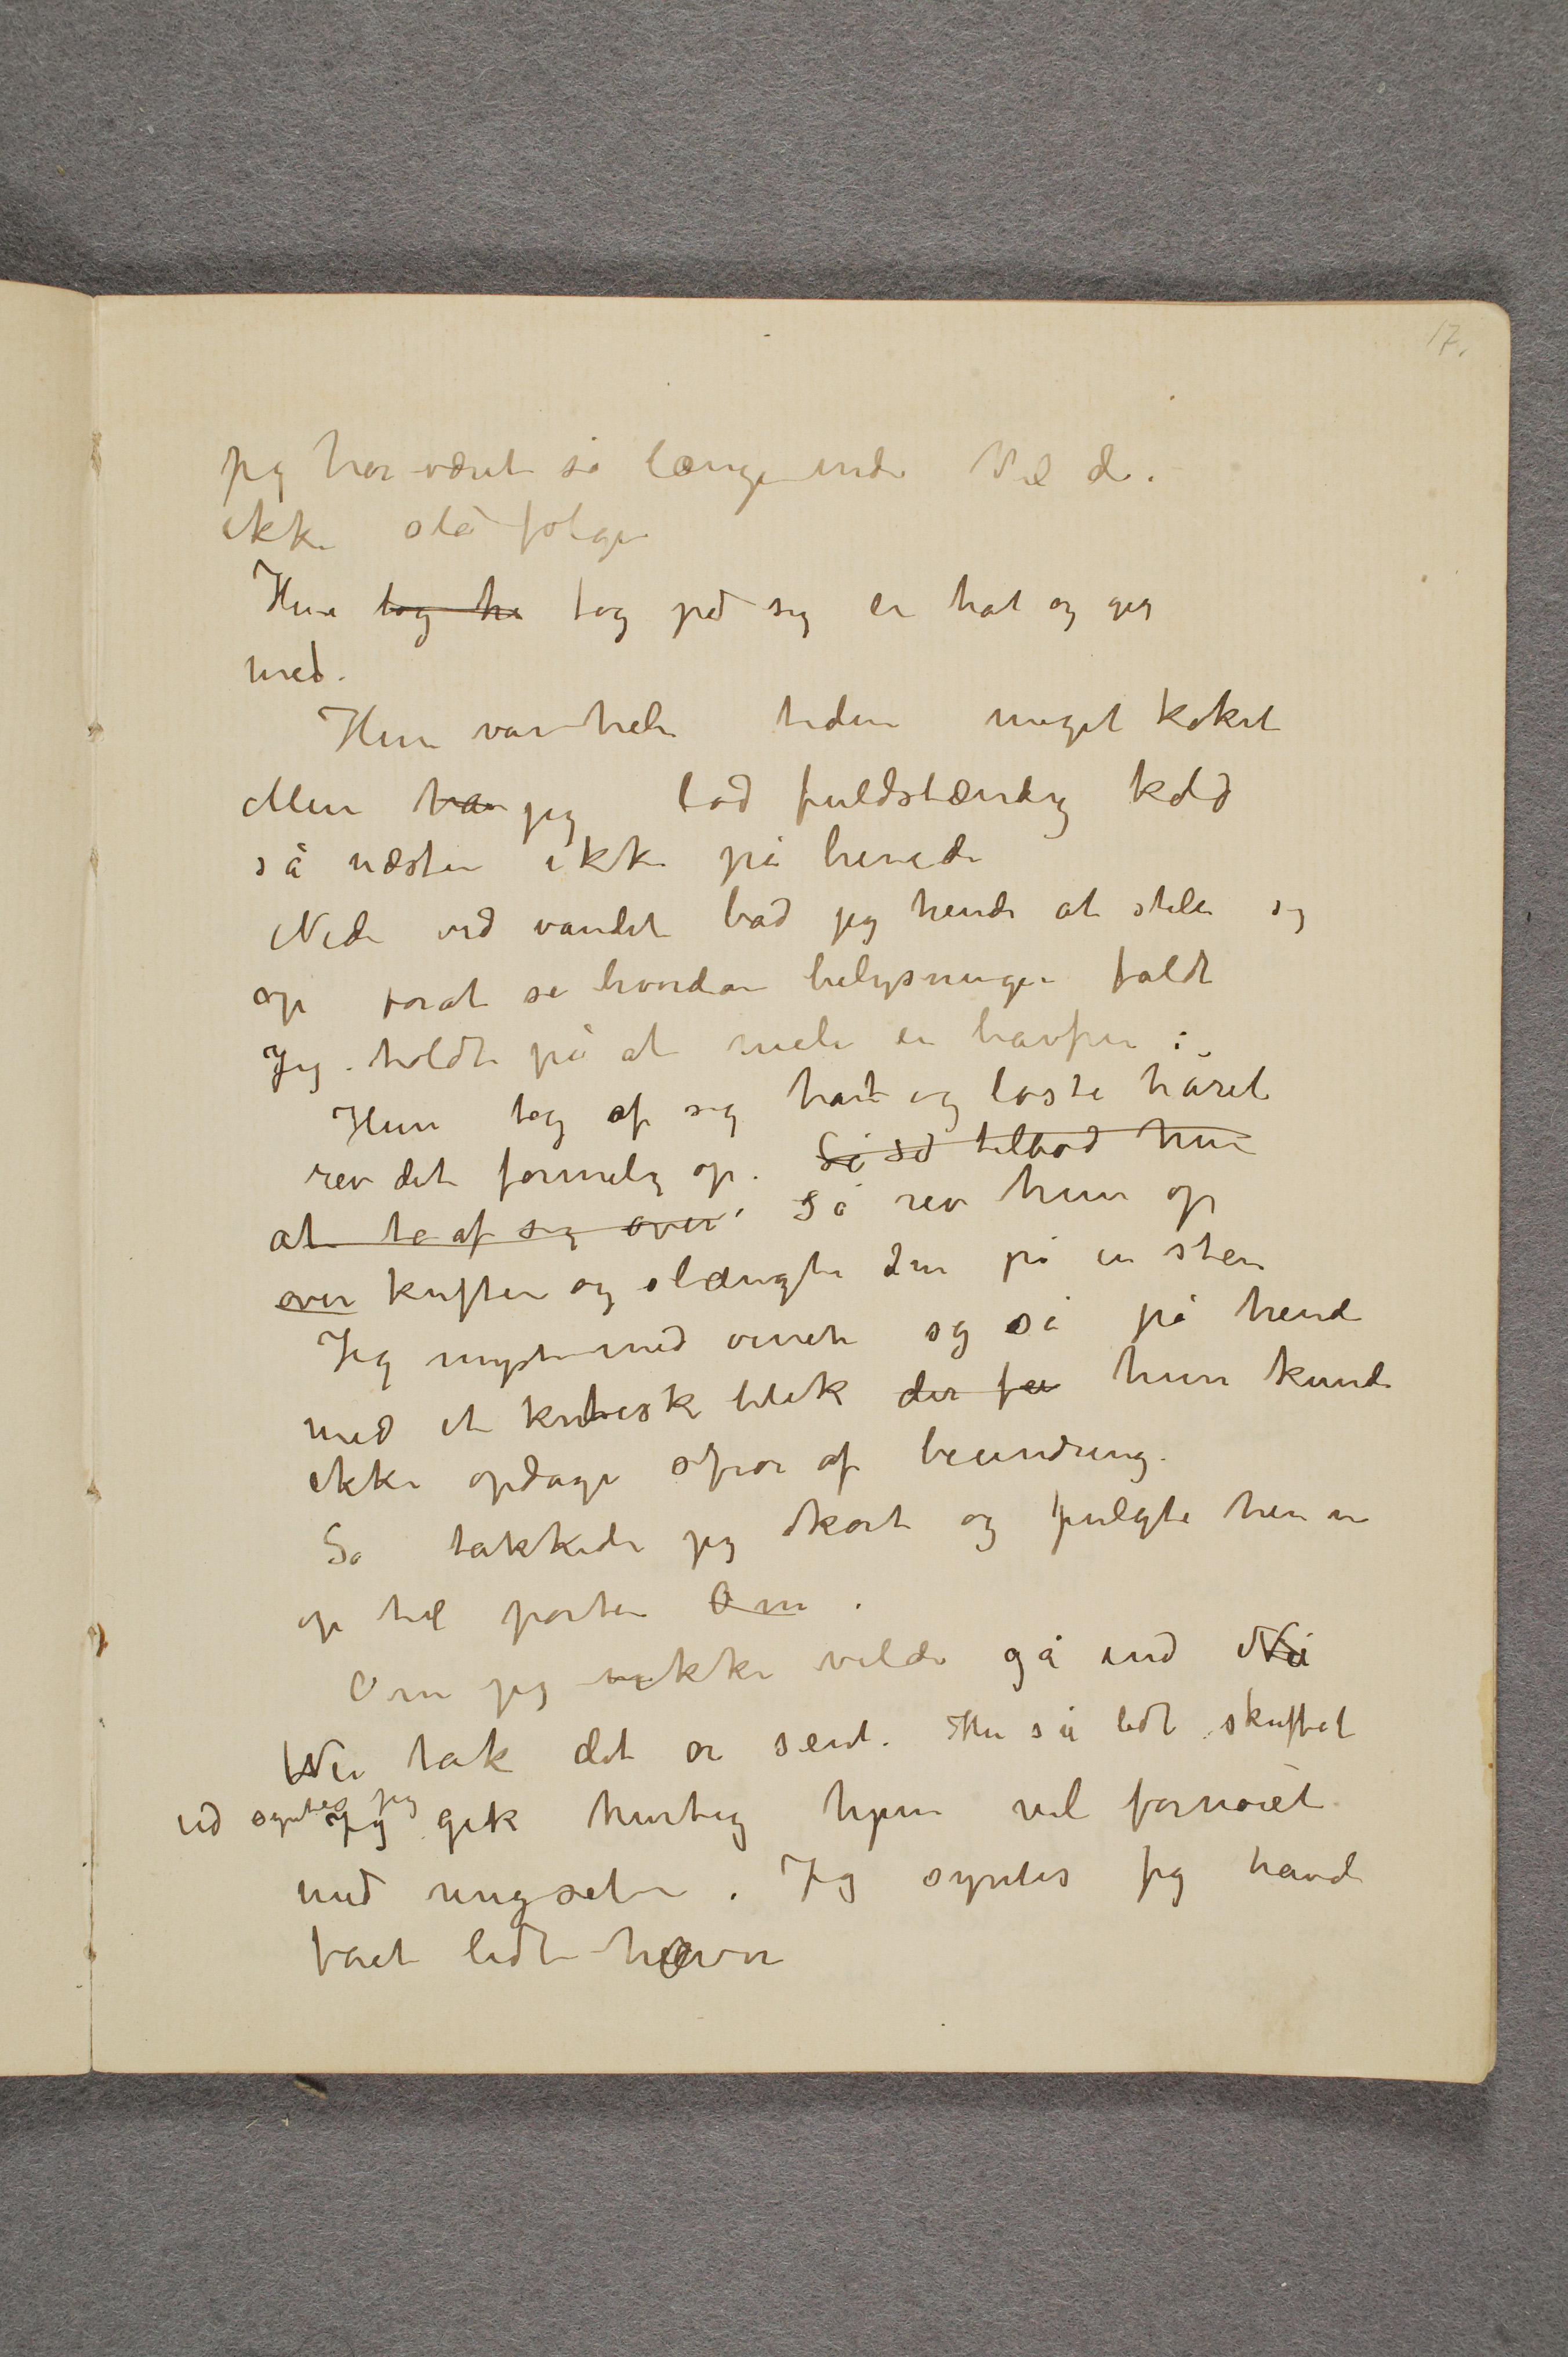 17.
Jeg har været så længe inde Vil De
ikke slå følge
Hun tog ha tog på sig en hat og gik
med.
Hun var hele tiden meget koket
Men han jeg lod fuldstændig kold
så næsten ikke på hende
Nede ved vandet bad jeg hende at stille sig
op forat se hvordan belysningen faldt
Jeg holdt på at male en havfru :
Hun tog af sig hat og løste håret
rev det formelig op. Så så tilbød hun
at ta af sig over. Så rev hun op
over kuften og slængte den på en sten
Jeg myste med øinene og så på hende
med et kritisk blik der fa hun kunde
ikke opdage spor af beundring.
Så takkede jeg kort og fulgte hende
op til porten Om.
Om jeg ikke vilde gå ind Nei
Nei tak det er sent. Hun så lidt skuffet
ud syntes jeg Jeg gik hurtig hjem vel fornøiet
med mig selv. Jeg syntes jeg havde
fået lidt hævn